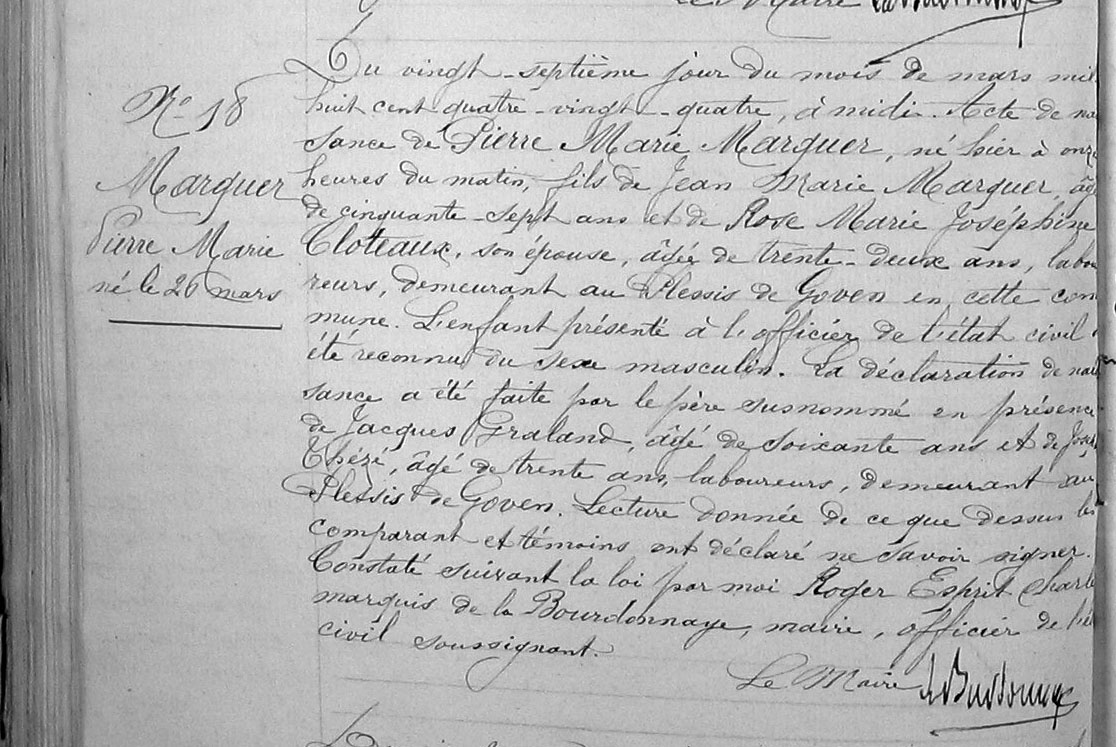 Le Maire
Du vingt-septième jour du mois de mars mil
huit cent quatre-vingt-quatre, à midi. Acte de nais
sance de Pierre Marie Marguer, né hier à onze
heures du matin, fils de Jean Marie Marguer, âgé
de cinquante-sept ans et de Rose Marie Joséphine
Cloteaux, son épouse, âgée de trente-deux ans, labou
reurs, demeurant au Plessis de Goven en cette com
mune. L'enfant présenté à l'officier de l'état civil a
été reconnu du sexe masculin. La déclaration de nais
sance a été faite par le père susnommé en présence
de Jacques Graland, âgé de soixante ans et de
Thézé, âgé de trente ans, laboureurs, demeurant au
Plessis de Goven. Lecture donnée de ce que dessus les
comparant et témoins ont déclaré ne savoir signer.
Constaté suivant la loi par moi Roger Esprit Charle
marquis de la Bourdonnaye, maire, officier de l'ét
civil soussignant.
Le Maire
No 18
Marguer
Pierre Marie
né le 26 mars